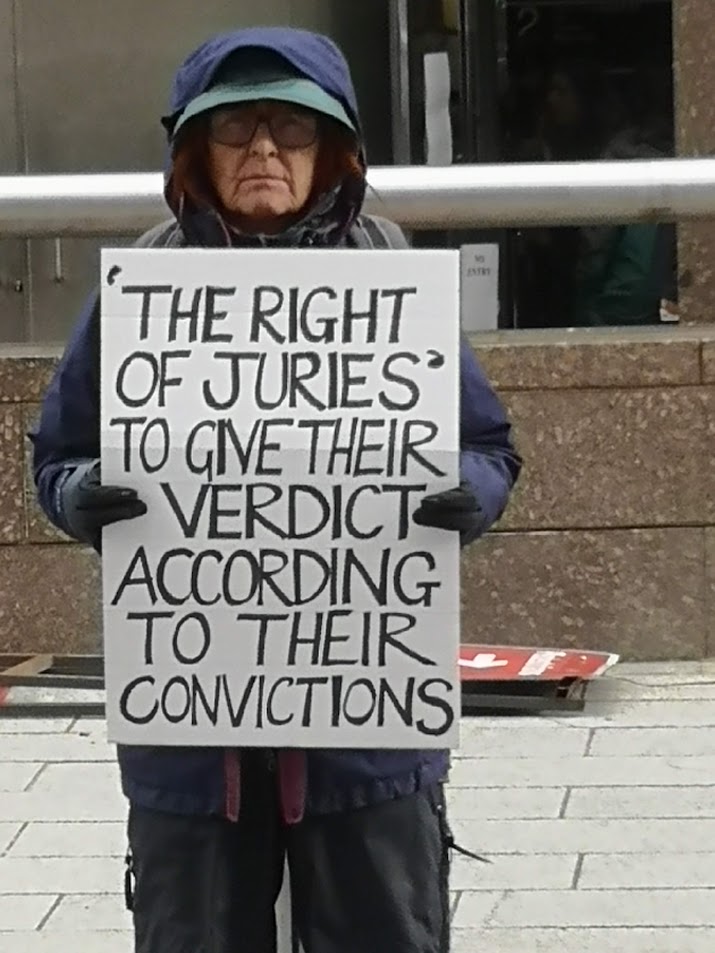 'THE RIGHT
OF JURIES'
TO GIVE THEIR
VERDICT
ACCORDING
TO THEIR
CONVICTIONS
NO
ENTRY